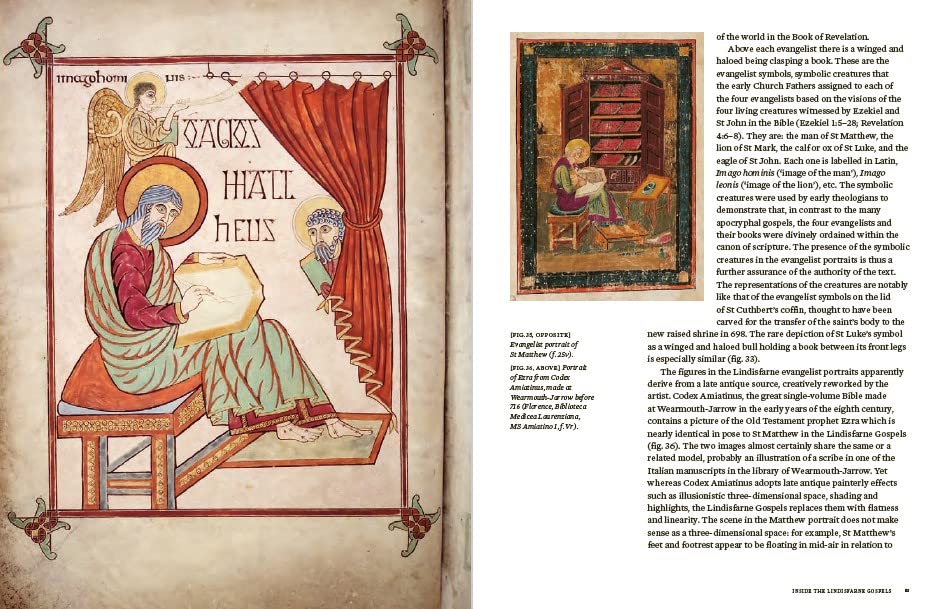 imago homi nis
O AGIOS
MATT
HEUS
of the world in the Book of Revelation.
Above each evangelist there is a winged and
haloed being clasping a book. These are the
evangelist symbols, symbolic creatures that
the early Church Fathers assigned to each of
the four evangelists based on the visions of the
four living creatures witnessed by Ezekiel and
St John in the Bible (Ezekiel 1:5–28; Revelation
4:6–8). They are: the man of St Matthew, the
lion of St Mark, the calf or ox of St Luke, and the
eagle of St John. Each one is labelled in Latin,
Imago hominis (‘image of the man’), Imago
leonis (‘image of the lion’), etc. The symbolic
creatures were used by early theologians to
demonstrate that, in contrast to the many
apocryphal gospels, the four evangelists and
their books were divinely ordained within the
canon of scripture. The presence of the symbolic
creatures in the evangelist portraits is thus a
further assurance of the authority of the text.
The representations of the creatures are notably
like that of the evangelist symbols on the lid
of St Cuthbert’s coffin, thought to have been
carved for the transfer of the saint’s body to the
new raised shrine in 698. The rare depiction of St Luke’s symbol
as a winged and haloed bull holding a book between its front legs
is especially similar (fig. 33).
The figures in the Lindisfarne evangelist portraits apparently
derive from a late antique source, creatively reworked by the
artist. Codex Amiatinus, the great single-volume Bible made
at Wearmouth-Jarrow in the early years of the eighth century,
contains a picture of the Old Testament prophet Ezra which is
nearly identical in pose to St Matthew in the Lindisfarne Gospels
(fig. 36). The two images almost certainly share the same or a
related model, probably an illustration of a scribe in one of the
Italian manuscripts in the library of Wearmouth-Jarrow. Yet
whereas Codex Amiatinus adopts late antique painterly effects
such as illusionistic three-dimensional space, shading and
highlights, the Lindisfarne Gospels replaces them with flatness
and linearity. The scene in the Matthew portrait does not make
sense as a three-dimensional space: for example, St Matthew’s
feet and footrest appear to be floating in mid-air in relation to
(FIG.35, OPPOSITE)
Evangelist portrait of
St Matthew (f.25v).
(FIG.36, ABOVE) Portrait
of Ezra from Codex
Amiatinus, made at
Wearmouth-Jarrow before
716 (Florence, Biblioteca
Medicea Laurenziana,
MS Amiatino 1, f. Vr).
INSIDE THE LINDISFARNE GOSPELS